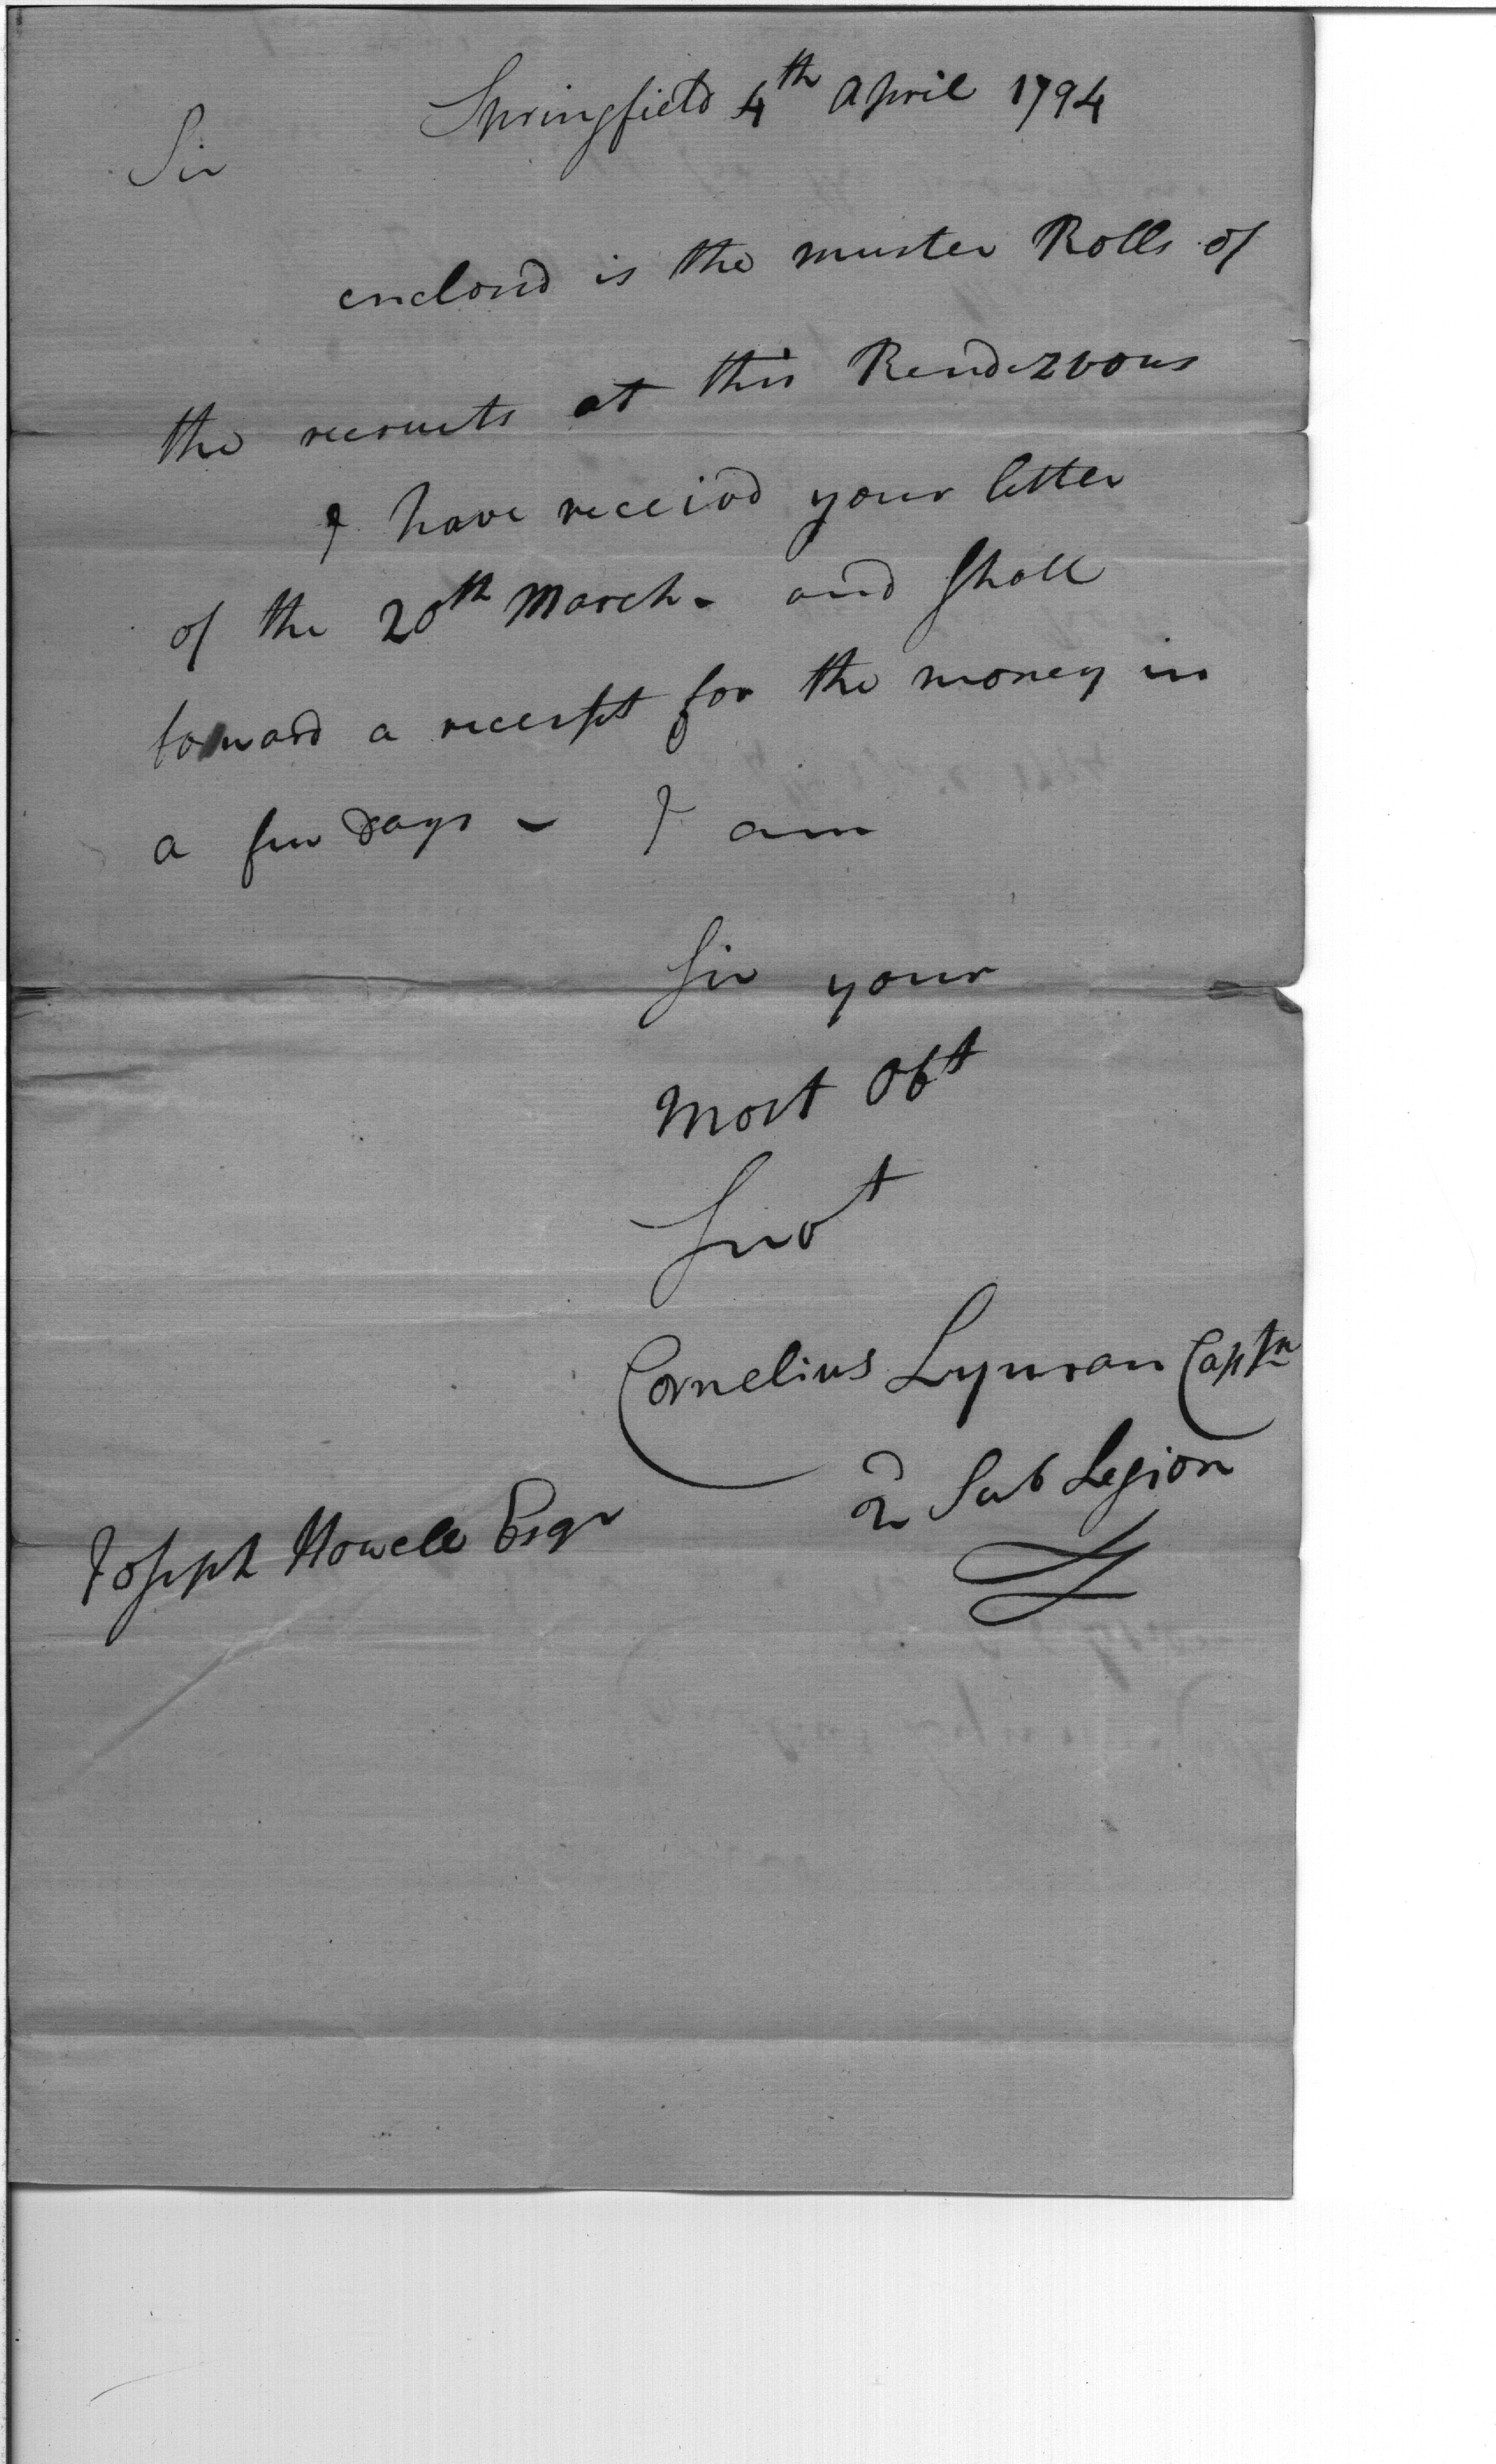 Springfield 4th April 1794
Sir
enclosd is the muster Rolls of
the recruits at this Rendezvous
I have receivd your letter
of the 20th March - and shall
forward a receipt for the money in
a few days - I am
Sir your
Most Obt
Servt
Cornelius Lyman Captn
2d Sub Legion
Joseph Howell Esqr